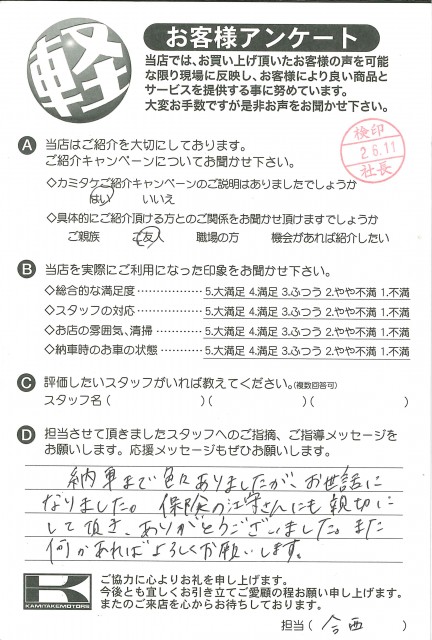 軽
お客様アンケート
当店では、お買い上げ頂いたお客様の声を可能
な限り現場に反映し、お客様により良い商品と
サービスを提供する事に努めています。
大変お手数ですが是非お声をお聞かせ下さい。
検印
2.6.11
社長
A 当店はご紹介を大切にしております。
ご紹介キャンペーンについてお聞かせ下さい。
◇カミタケご紹介キャンペーンのご説明はありましたでしょうか
はい いいえ
◇具体的にご紹介頂ける方とのご関係をお聞かせ頂けますでしょうか
ご親族 ご友人 職場の方 機会があれば紹介したい
B 当店を実際にご利用になった印象をお聞かせ下さい。
◇総合的な満足度 ……………… 5.大満足 4.満足 3.ふつう 2.やや不満 1.不満
◇スタッフの対応 ……………… 5.大満足 4.満足 3.ふつう 2.やや不満 1.不満
◇お店の雰囲気、清掃 ………… 5.大満足 4.満足 3.ふつう 2.やや不満 1.不満
◇納車時のお車の状態 ………… 5.大満足 4.満足 3.ふつう 2.やや不満 1.不満
C 評価したいスタッフがいれば教えてください。(複数回答可)
スタッフ名( )( )( )
D 担当させて頂きましたスタッフへのご指摘、ご指導メッセージを
お願いします。応援メッセージもぜひお願いします。
納車まで色々ありましたが、お世話に
なりました。保険の江守さんにも親切に
して頂き、ありがとうございました。また
何かあればよろしくお願いします。
K
KAMITAKEMOTORS
ご協力に心よりお礼を申し上げます。
今後とも宜しくお引き立てご愛顧の程お願い申し上げます。
またのご来店を心からお待ちしております。
担当( 今西 )